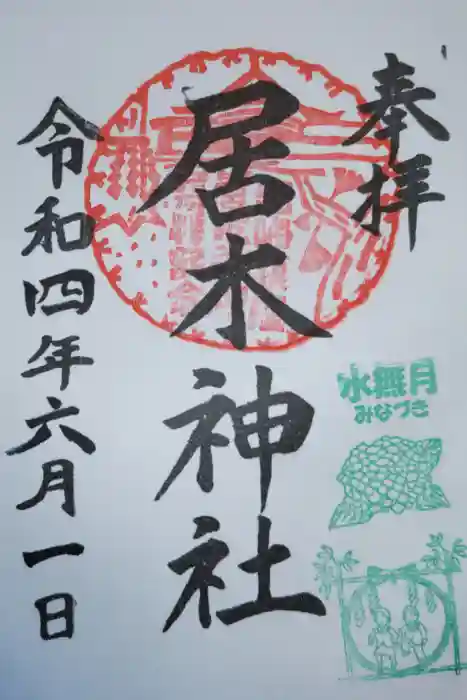 奉拝
居木神社
令和四年六月一日
水無月
みなづき